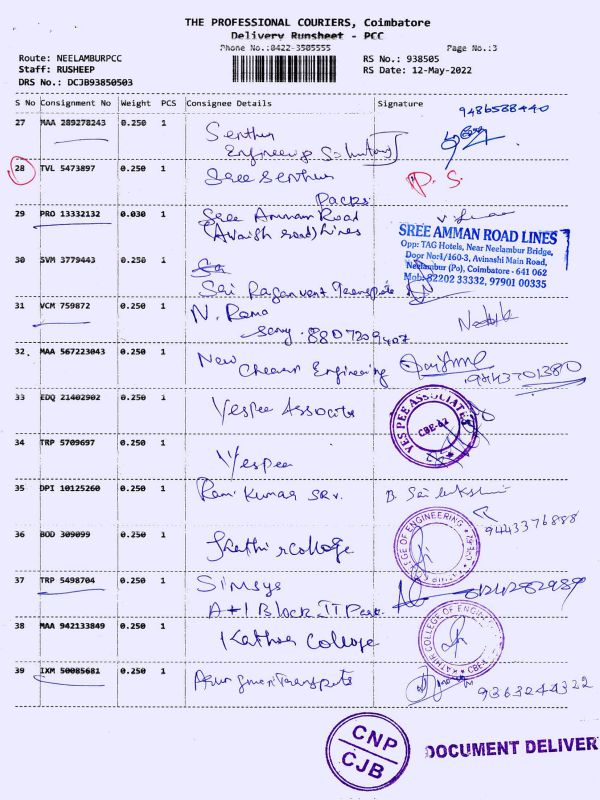 THE PROFESSIONAL COURIERS, Coimbatore
Delivery Runsheet - PCC
Phone No.:0422-3505555 Page No.:3
Route: NEELAMBURPCC RS No.: 938505
Staff: RUSHEEP RS Date: 12-May-2022
DRS No.: DCJB93850503
S No Consignment No Weight PCS Consignee Details Signature
9486588440
27 MAA 289278243 0.250 1 Senthur
Engineering
28 TVL 5473897 0.250 1 Sree Senthur P. S.
Packs
29 PRO 13332132 0.030 1 Sree Amman Road
Lines
SREE AMMAN ROAD LINES
Opp: TAG Hotels, Near Neelambur Bridge,
Door No:4/160-3, Avinashi Main Road,
Neelambur (Po), Coimbatore - 641 062
Mob: 82202 33332, 97901 00335
30 SVM 3779443 0.250 1
Sai
31 VCM 759872 0.250 1 N. Rama
8807209407
32. MAA 567223043 0.250 1 New
Engineering 9843701380
33 EDQ 21402902 0.250 1 Yespee Associate
YES PEE ASSOCIATES
CBE-62
34 TRP 5709697 0.250 1 Yespee
35 DPI 10125260 0.250 1 Ram Kumar
9443376888
36 BOD 309099 0.250 1 Kathir college
COLLEGE OF ENGINEERING
37 TRP 5498704 0.250 1 Simsys
Block IT Park
38 MAA 942133849 0.250 1 Kathir College
KATHIR COLLEGE OF ENGINEERING
39 IXM 50085681 0.250 1 9363244322
CNP
CJB
DOCUMENT DELIVER